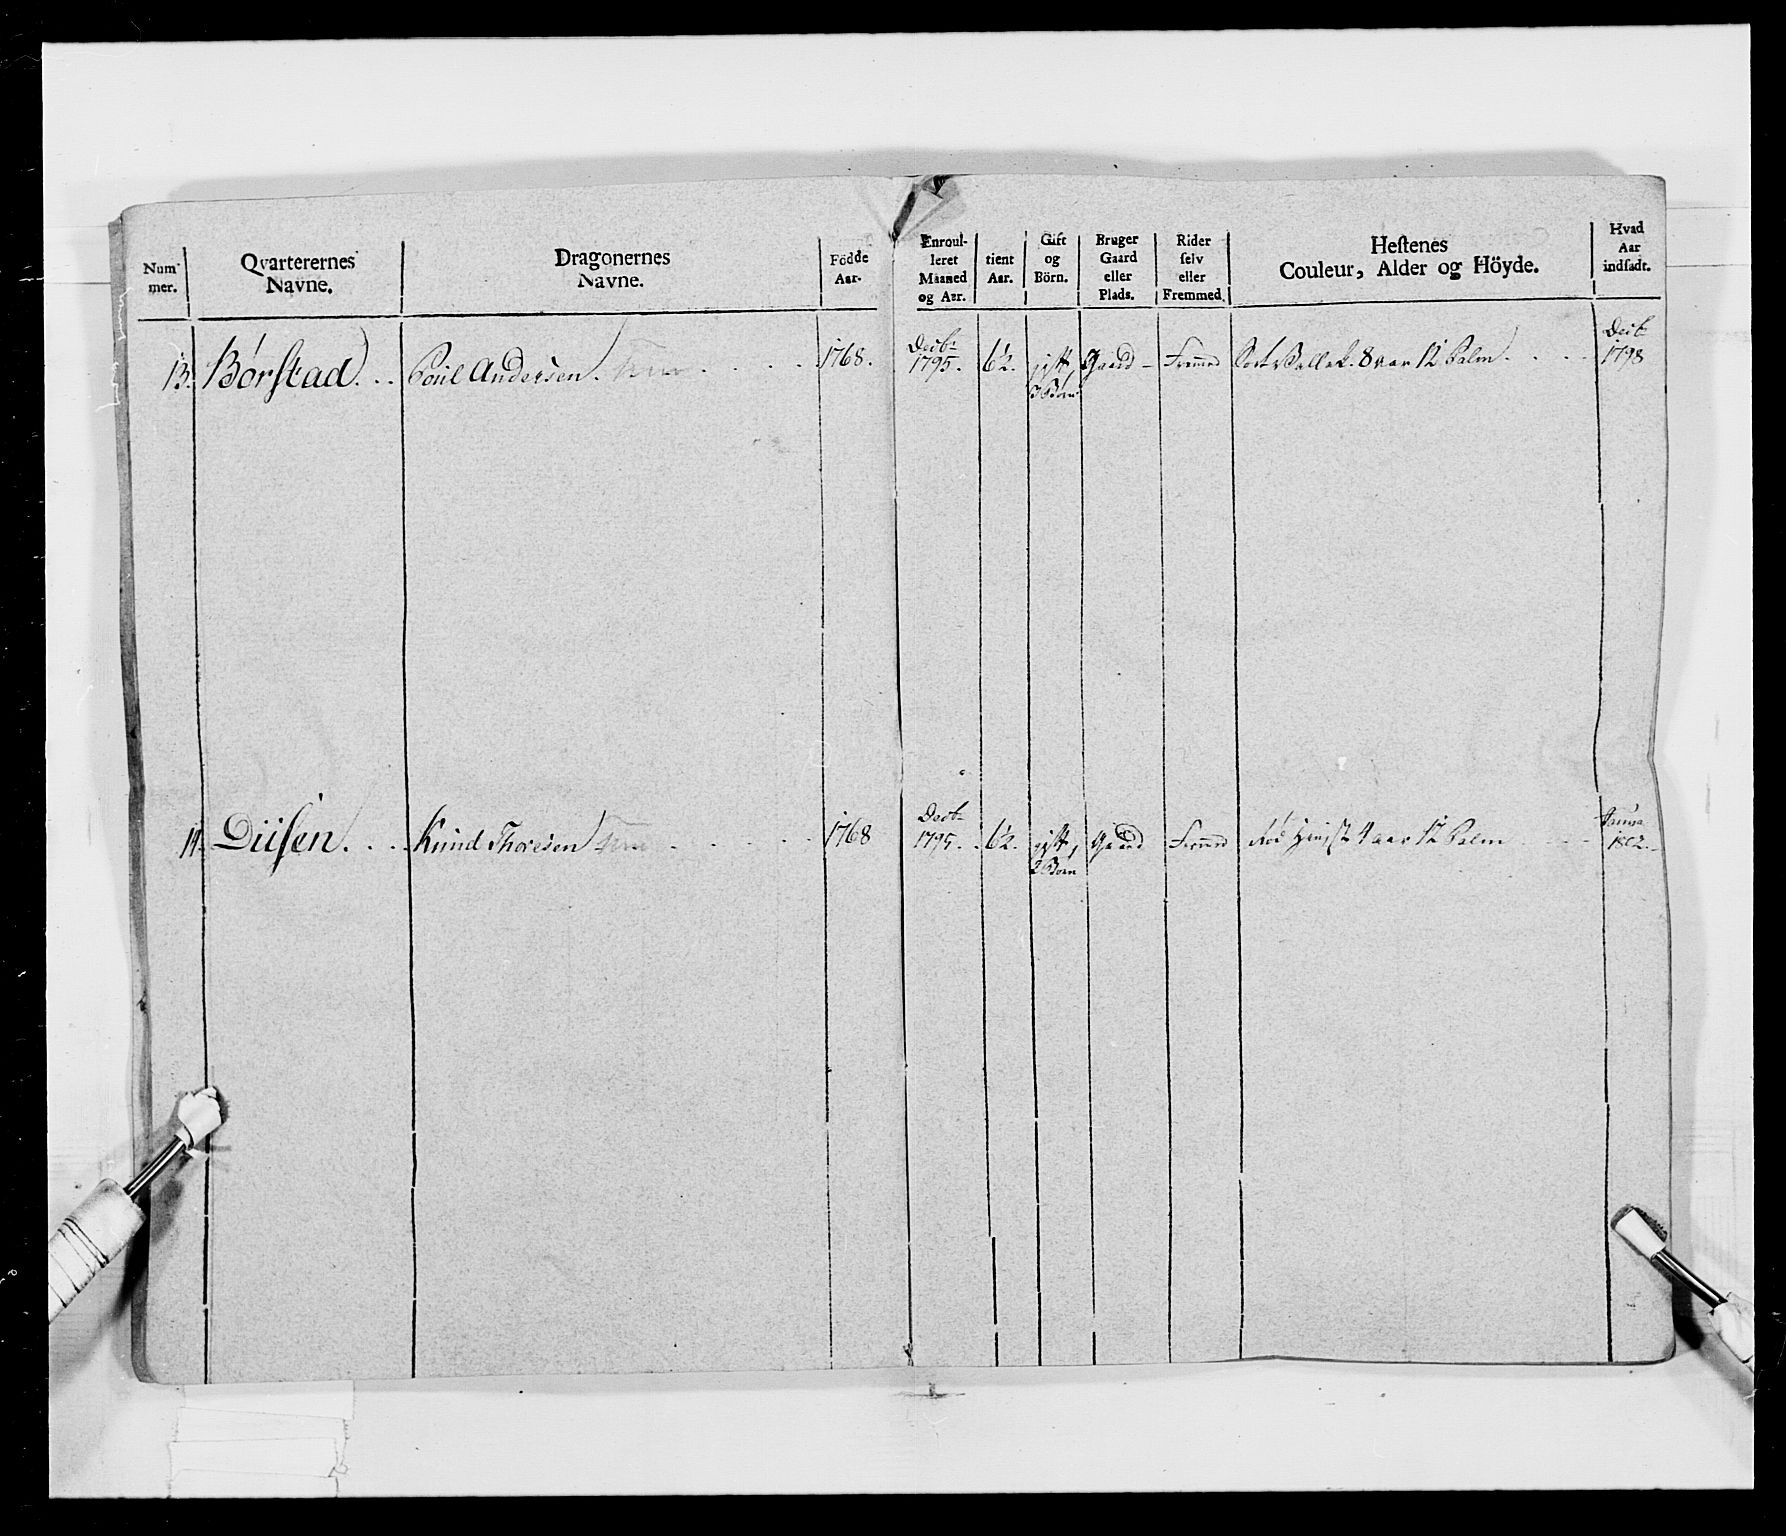 Num-
mer.
Qvarterernes
Navne.
Dragonernes
Navne.
Födde
Aar.
Enroul-
leret
Maaned
og Aar.
tient
Aar.
Gift
og
Börn.
Bruger
Gaard
eller
Plads.
Rider
selv
eller
Fremmed.
Hestenes
Couleur, Alder og Höyde.
Hvad
Aar
indsadt.
13. Börstad. . . Poül Andersen. 1768. Decbr 1795. 6½. gift, 3 Börn Gaard - Fremed Vallak. 8 aar 12 Palm. Decb 1798
14. Düsen. . . Knud Thoresen 1768 Decb 1795. 6½. gift, 2 Börn Gaard Fremed Röd Hingst 4 aar 12 Palm Janua 1802.